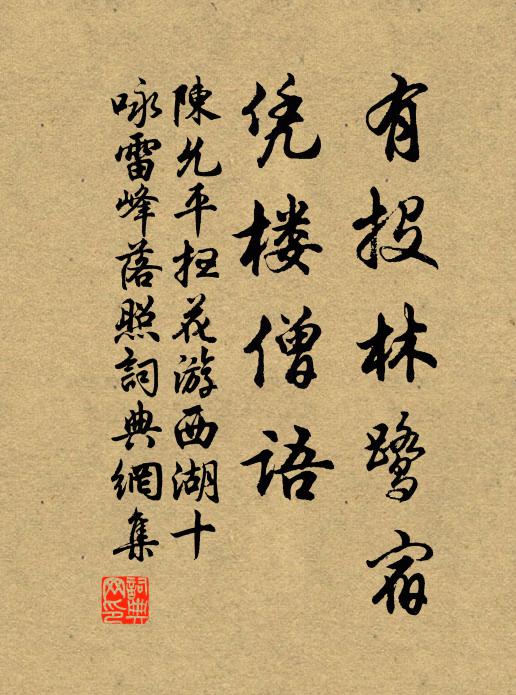 有投林鹭宿
凭楼僧語
陳允平扫花游西湖十
咏雷峰落照詞典網集
詞典
网印